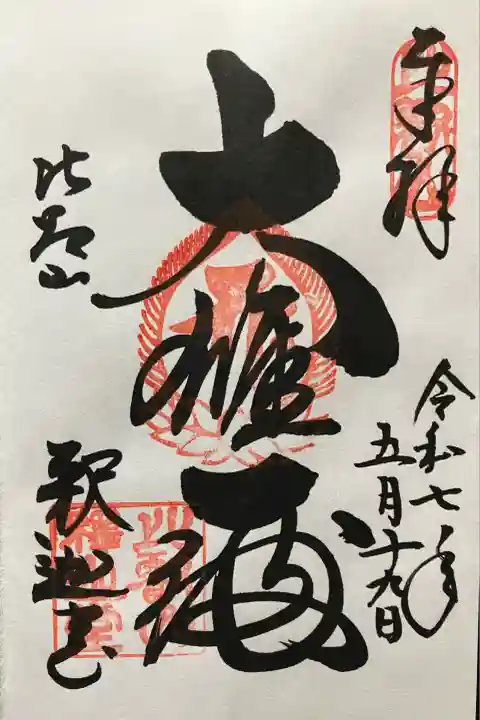 奉拝
令和七年
五月十九日
大雄殿
比叡山
釈迦堂